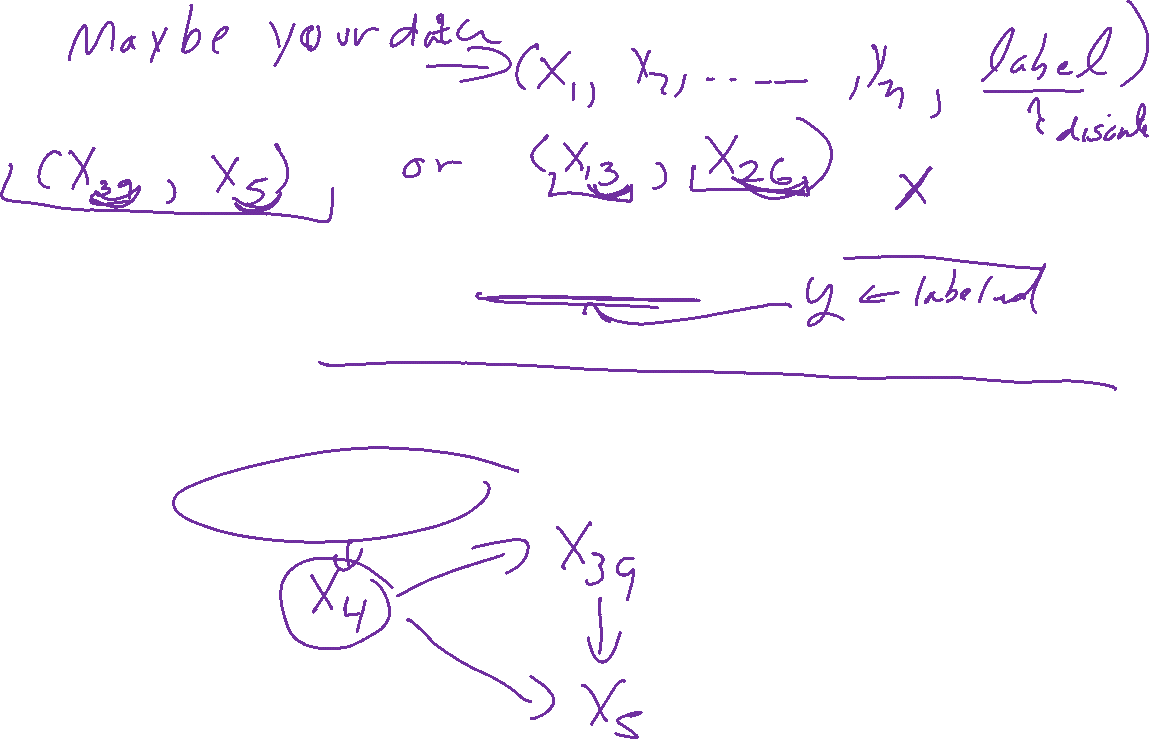 Maybe your data → (X₁, X₂, ..... , Xₙ, label)
discrete
(X₃₉, X₅) or (X₁₃, X₂₆) X
y ← labeled
X₃₉
X₄
X₅